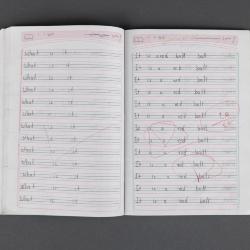 What is it.
What is it.
What is it.
What is it.
What is it.
What is it.
What is it.
What is it.
What is it.
What is it.
What is it.
What is it.
What is it.
What is it.
It is a red ball ball
It is a red ball
It is a red ball
It is a red ball
It is a red ball
It is a red ball
It is a red ball
is a red ball
It is a red ball
It is a red ball
It is a red ball
It is a red ball
It is a red ball
It is a red ball